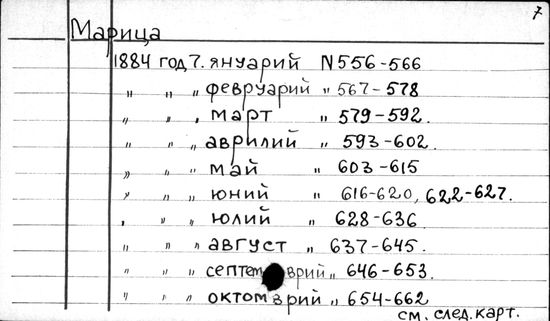 7
Марица
1884 год 7. януарий N 556-566
" " " февруарий " 567-578
" " " март " 579-592.
" " " аврилий " 593-602.
" " " май " 603-615
" " " юний " 616-620, 622-627.
" " " юлий " 628-636
" " " август " 637-645.
" " " " 646-653.
" " " октомврий " 654-662
см. след. карт.